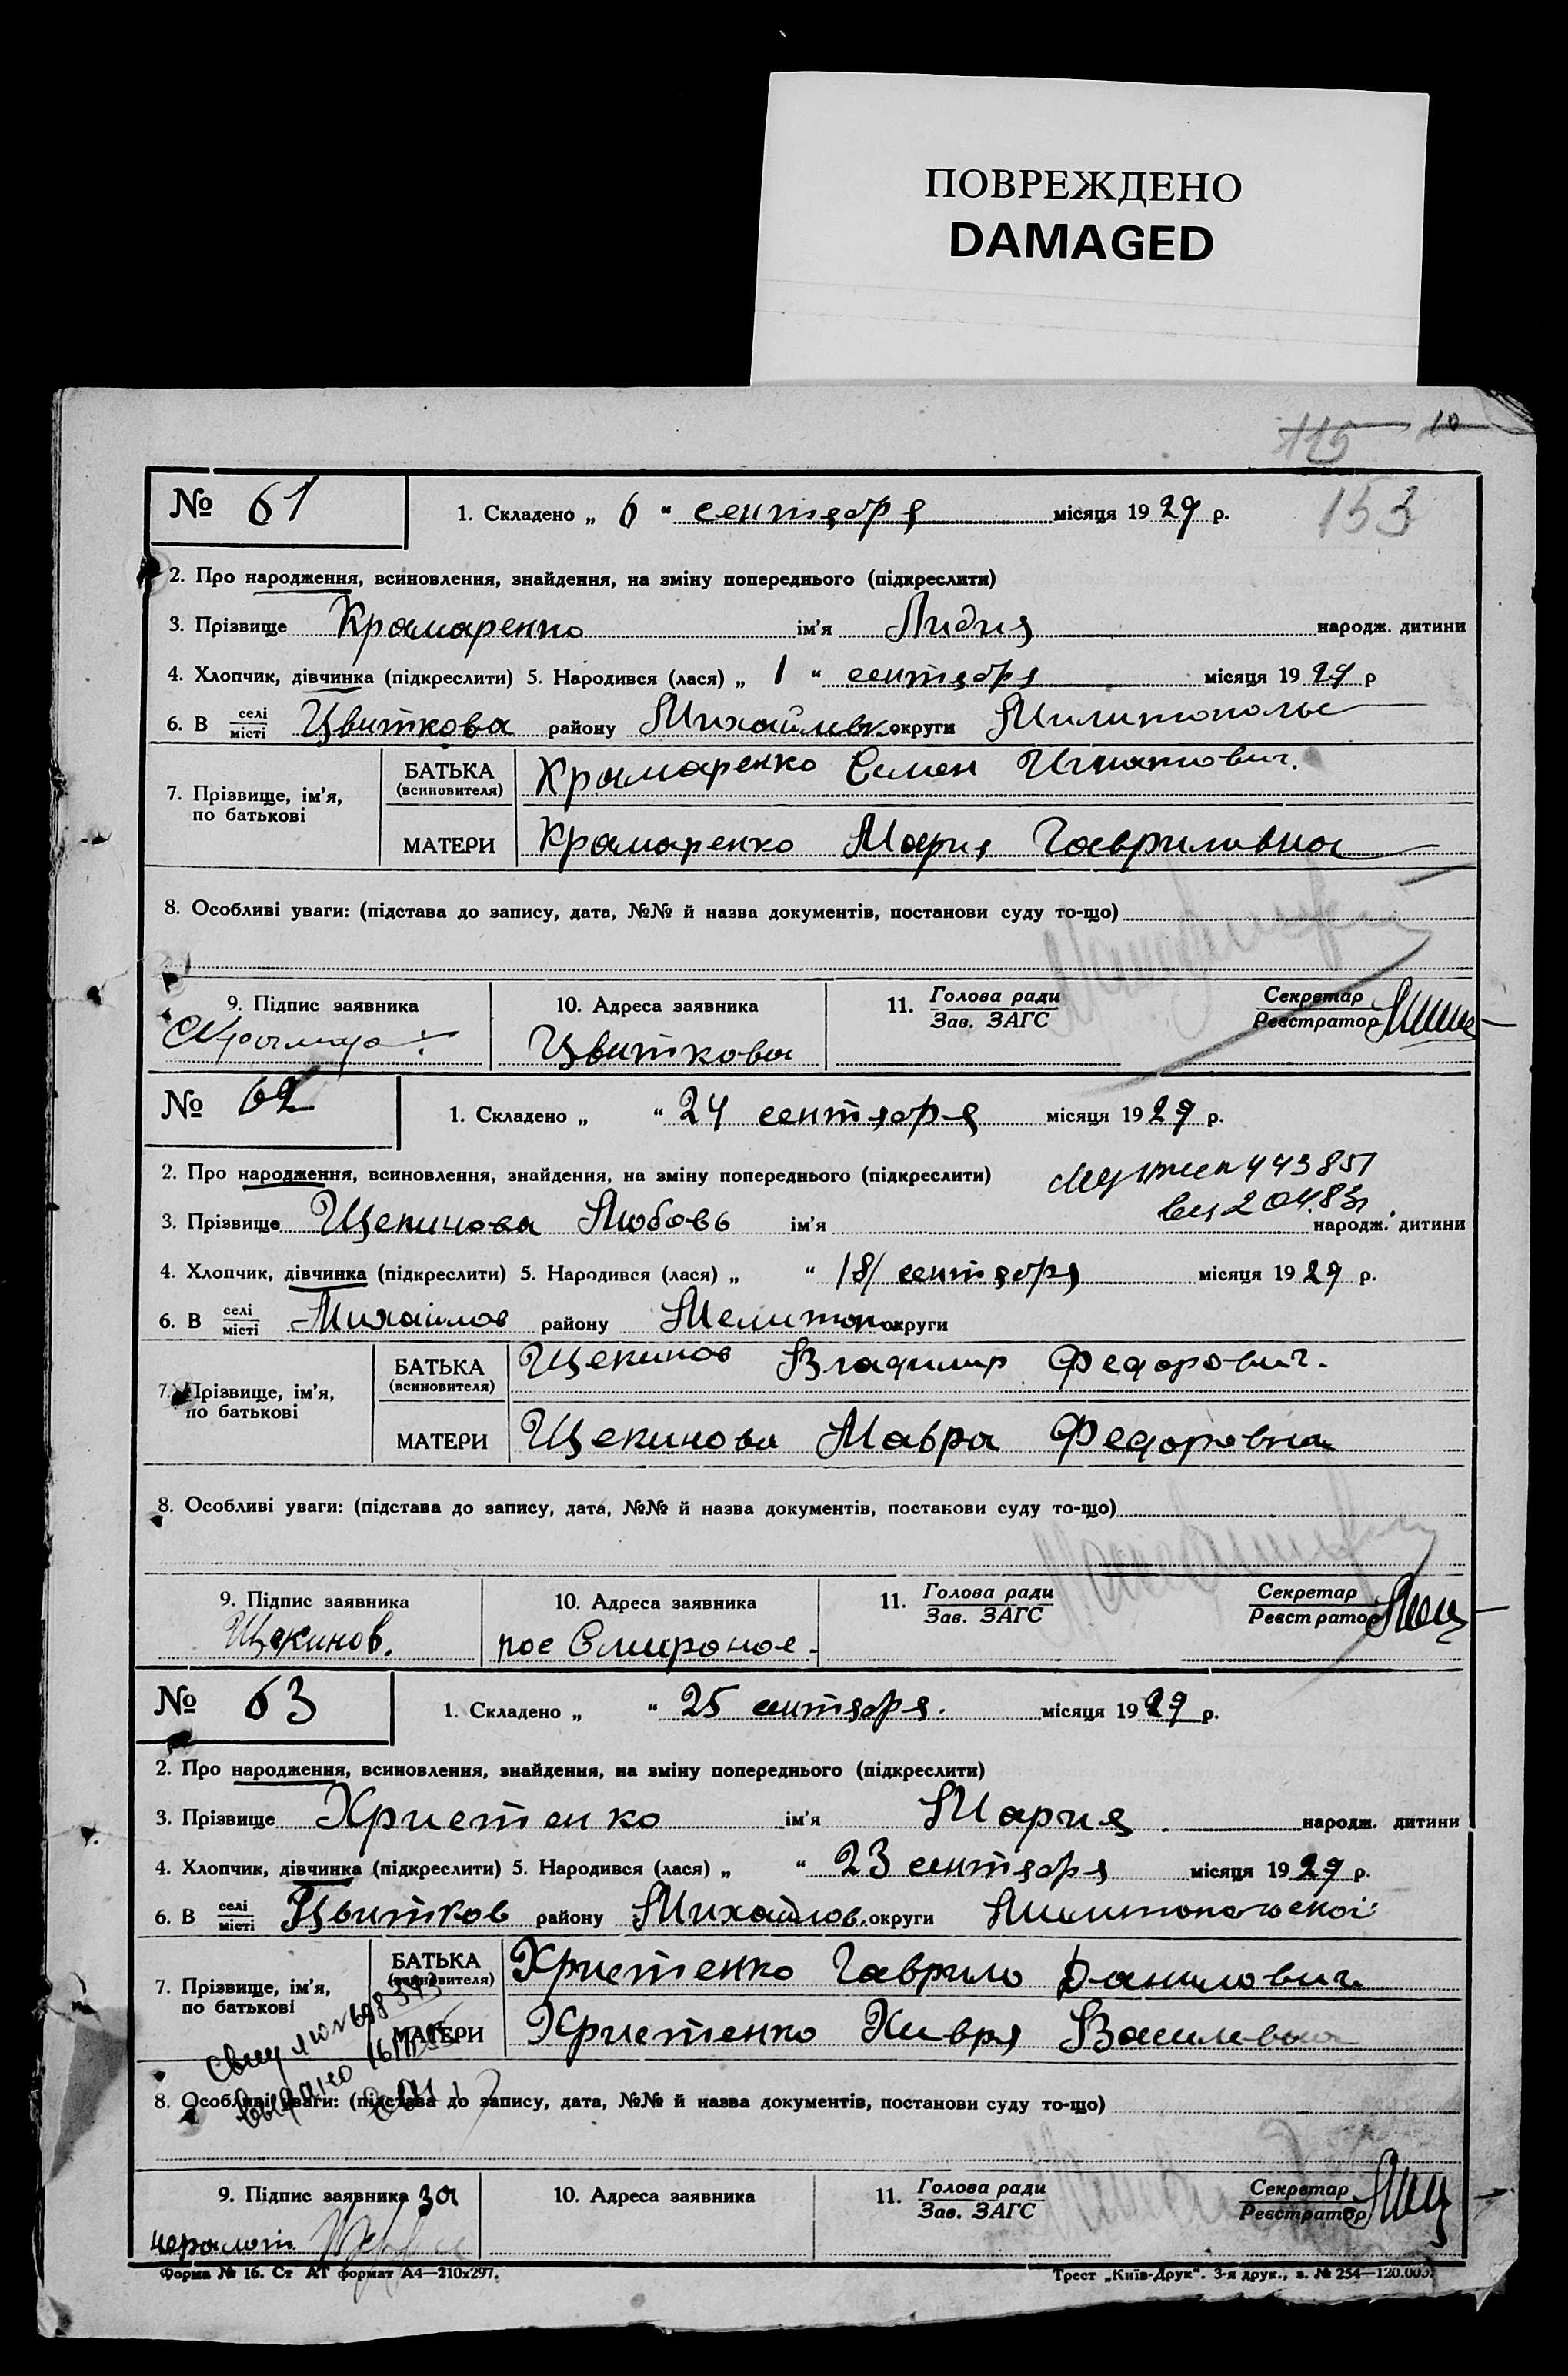 ПОВРЕЖДЕНО
DAMAGED
115 10
153
№ 61
1. Складено „ 6 “ сентября місяця 1929 р.
2. Про народження, всиновлення, знайдення, на зміну попереднього (підкреслити)
3. Прізвище Крамаренко ім'я Лидия народж. дитини
4. Хлопчик, дівчинка (підкреслити) 5. Народився (лася) „ 1 “ сентября місяця 1929 р
6. В селі місті Цвиткова району Михайлевк. округи Милитополь
7. Прізвище, ім'я, по батькові
БАТЬКА (всиновителя) Крамаренко Семен Игнатович.
МАТЕРИ Крамаренко Мария Гавриливна
8. Особливі уваги: (підстава до запису, дата, №№ й назва документів, постанови суду то-що)
9. Підпис заявника 10. Адреса заявника 11. Голова ради Зав. ЗАГС Секретар Реєстратор
Цвиткова
№ 62
1. Складено „ “ 24 сентября місяця 1929 р.
2. Про народження, всиновлення, знайдення, на зміну попереднього (підкреслити)
443851
3. Прізвище Щекинова Любовь ім'я народж. дитини
4. Хлопчик, дівчинка (підкреслити) 5. Народився (лася) „ “ 18/ сентября місяця 1929 р.
6. В селі місті Михайлов району Мелитоп. округи
7. Прізвище, ім'я, по батькові
БАТЬКА (всиновителя) Щекинов Владимир Федорович.
МАТЕРИ Щекинова Мавра Федоровна
8. Особливі уваги: (підстава до запису, дата, №№ й назва документів, постанови суду то-що)
9. Підпис заявника 10. Адреса заявника 11. Голова ради Зав. ЗАГС Секретар Реєстратор
Щекинов. пос
№ 63
1. Складено „ “ 25 сентября. місяця 1929 р.
2. Про народження, всиновлення, знайдення, на зміну попереднього (підкреслити)
3. Прізвище Христенко ім'я Мария. народж. дитини
4. Хлопчик, дівчинка (підкреслити) 5. Народився (лася) „ “ 23 сентября місяця 1929 р.
6. В селі місті Цвитков району Михайлов. округи Милитопольскої
7. Прізвище, ім'я, по батькові
БАТЬКА (всиновителя) Христенко Гаврило Данилович
МАТЕРИ Христенко Хивря Василевна
8. Особливі уваги: (підстава до запису, дата, №№ й назва документів, постанови суду то-що)
9. Підпис заявника за 10. Адреса заявника 11. Голова ради Зав. ЗАГС Секретар Реєстратор
Форма № 16. Ст АТ формат А4—210х297. Трест „Київ-Друк“. 3-я друк., з. № 254—120.000.